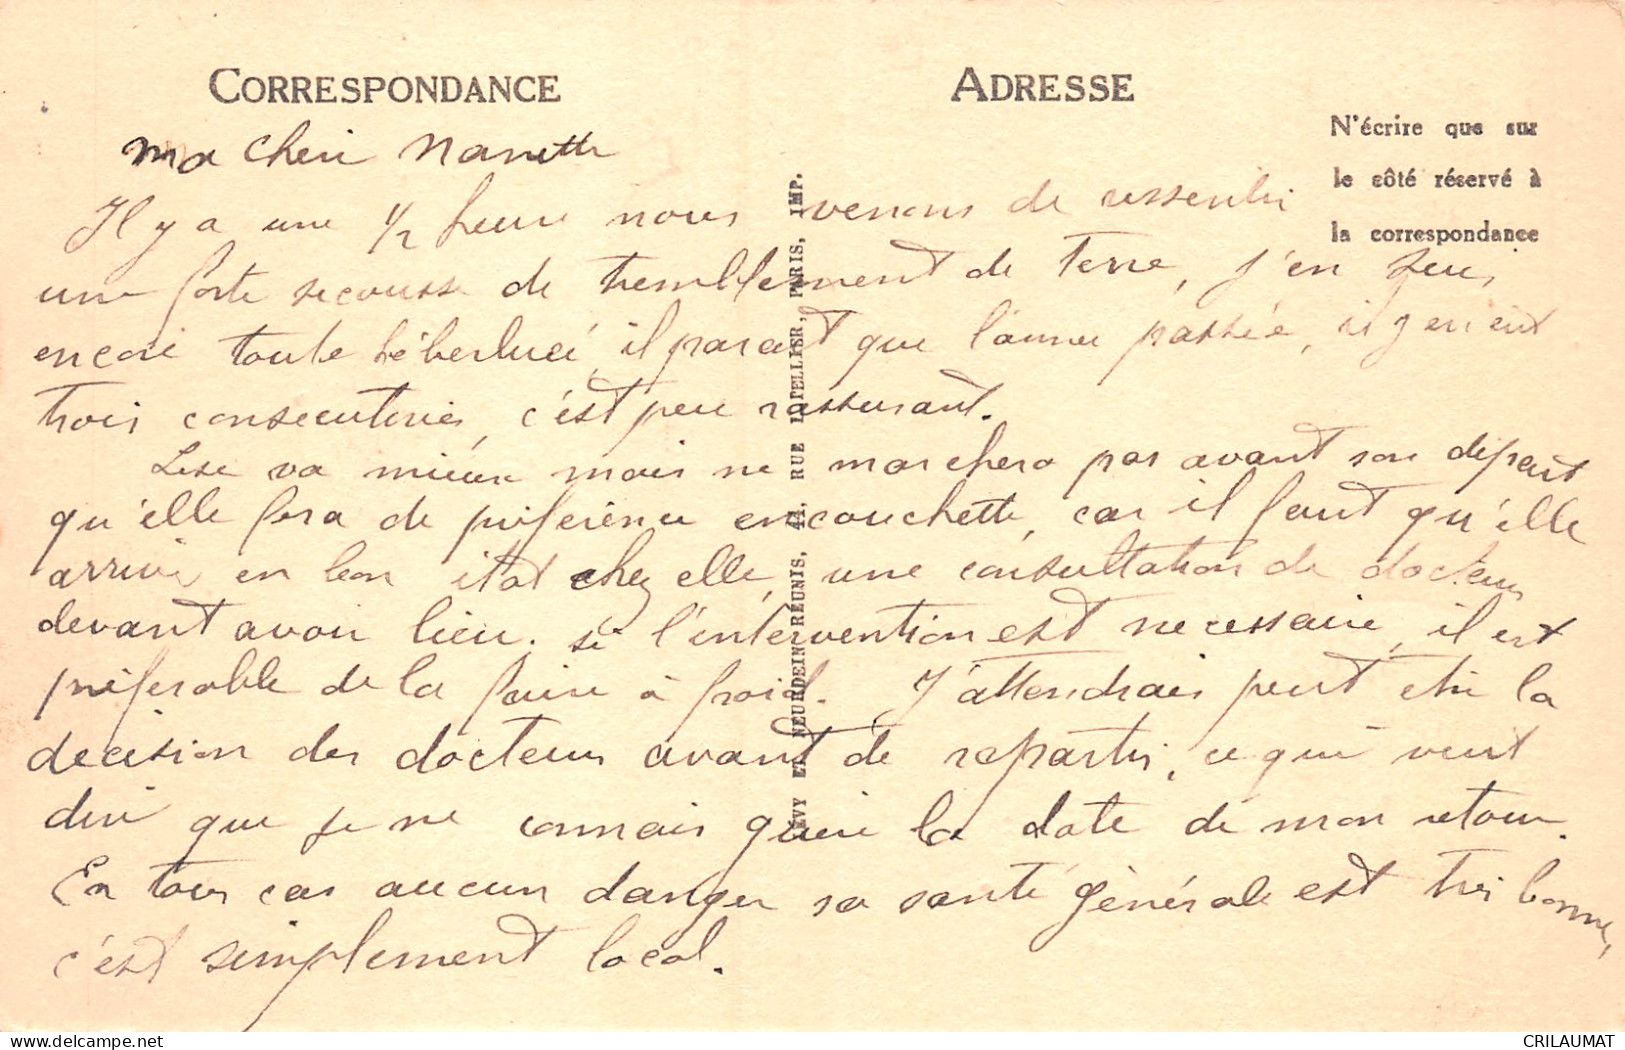 CORRESPONDANCE
ADRESSE
N'écrire que sur
le côté réservé à
la correspondance
LÉVY ET NEURDEIN RÉUNIS, 44, RUE LETELLIER, PARIS, IMP.
Ma cheri Nanette
Il y a une 1/2 heure nous venons de ressentir
une forte secousse de tremblement de terre, j'en suis
encore toute éberluée, il parait que l'année passée, il y en eut
trois consecutives, c'est peu rassurant.
Lise va mieux mais ne marchera pas avant son départ
qu'elle fera de préférence en couchette, car il faut qu'elle
arrive en bon état chez elle, une consultation de docteurs
devant avoir lieu. si l'intervention est necessaire, il est
préférable de la faire à froid. J'attendrais peut etre la
decision des docteurs avant de repartir, ce qui veut
dire que je ne connais guère la date de mon retour.
En tous cas aucun danger sa santé générale est très bonne,
c'est simplement local.
delcampe.net
CRILAUMAT